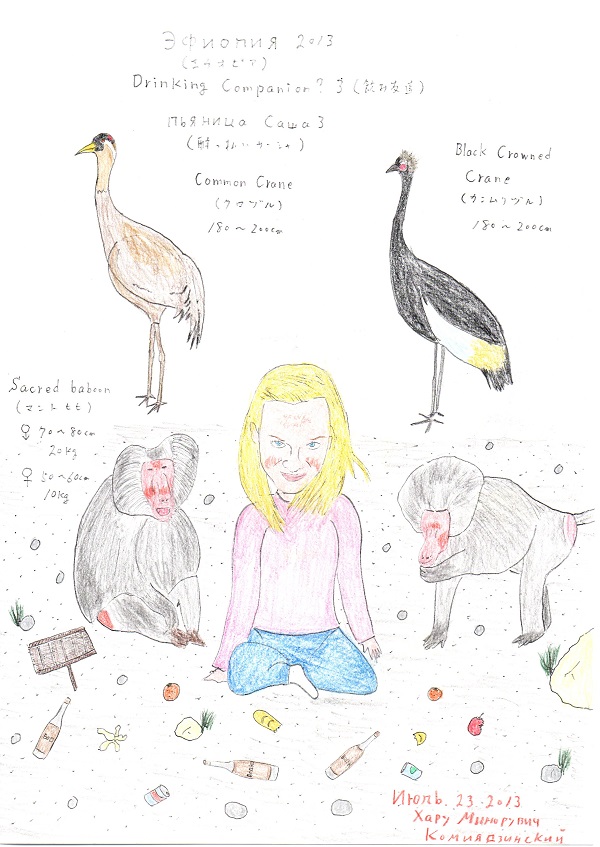 Эфиопия 2013
(エチオピア)
Drinking Companion? 3 (飲み友達)
Пьяница Саша 3
(酔っ払いサーシャ)
Common Crane
(クロヅル)
180〜200cm
Black Crowned
Crane
(カンムリヅル)
180〜200cm
Sacred baboon
(マントヒヒ)
♂ 70〜80cm
20kg
♀ 50〜60cm
10kg
Июль. 23. 2013
Хару Минорувич
Комиядзинский